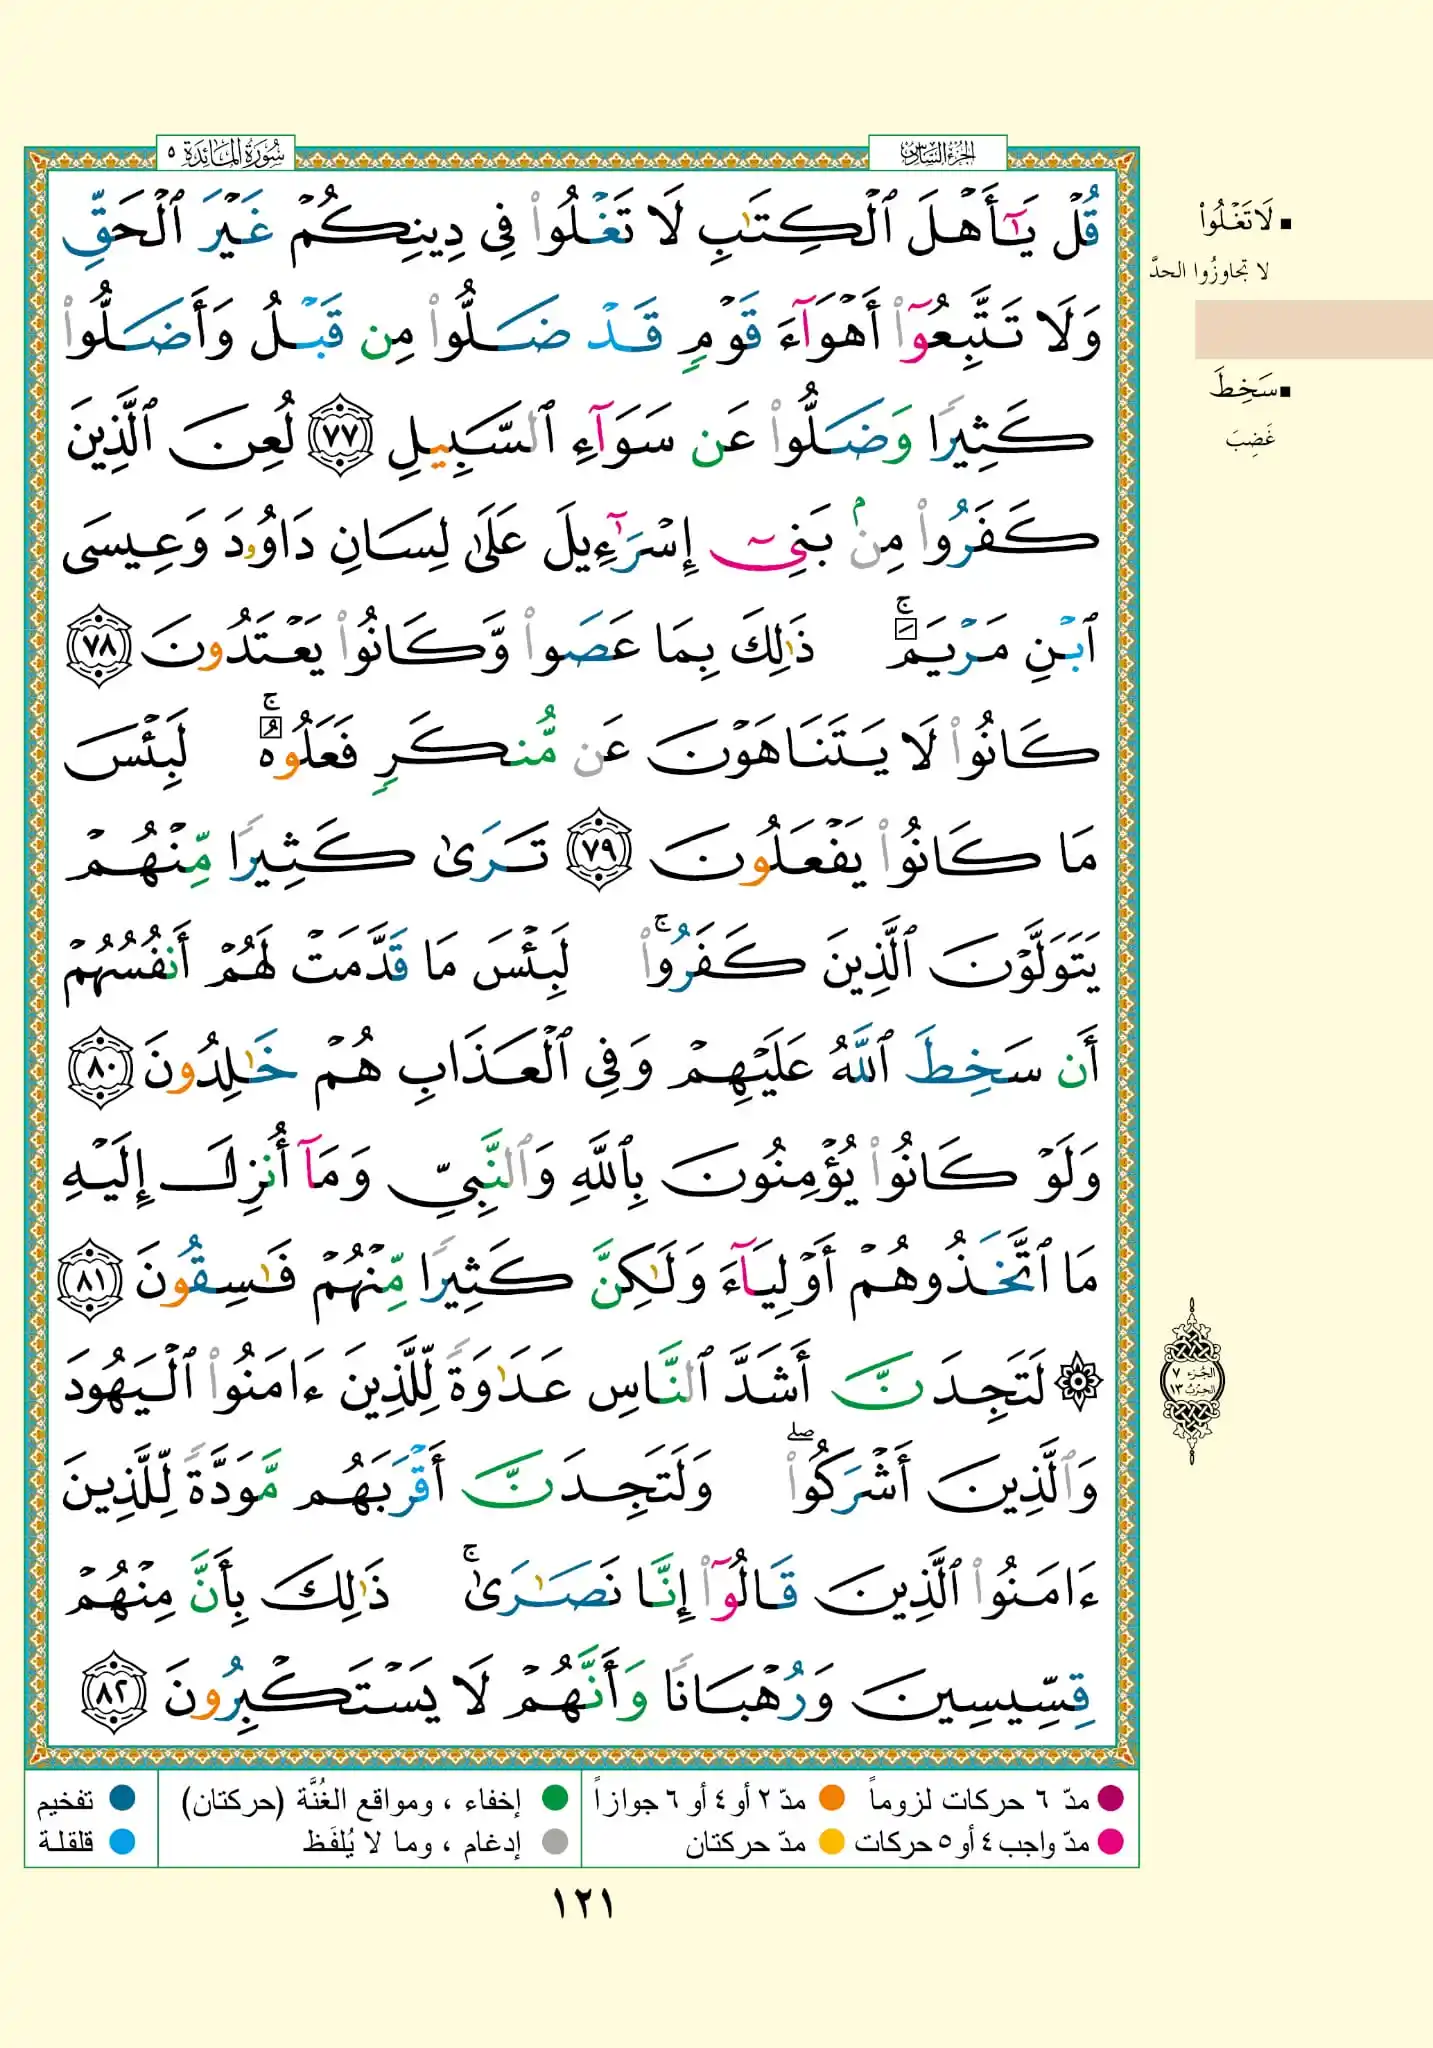 الجزء السادس
سورة المائدة ٥
قُلْ يَـٰٓأَهْلَ ٱلْكِتَـٰبِ لَا تَغْلُوا۟ فِى دِينِكُمْ غَيْرَ ٱلْحَقِّ
وَلَا تَتَّبِعُوٓا۟ أَهْوَآءَ قَوْمٍ قَدْ ضَلُّوا۟ مِن قَبْلُ وَأَضَلُّوا۟
كَثِيرًا وَضَلُّوا۟ عَن سَوَآءِ ٱلسَّبِيلِ ٧٧ لُعِنَ ٱلَّذِينَ
كَفَرُوا۟ مِنۢ بَنِىٓ إِسْرَٰٓءِيلَ عَلَىٰ لِسَانِ دَاوُۥدَ وَعِيسَى
ٱبْنِ مَرْيَمَ ۚ ذَٰلِكَ بِمَا عَصَوا۟ وَّكَانُوا۟ يَعْتَدُونَ ٧٨
كَانُوا۟ لَا يَتَنَاهَوْنَ عَن مُّنكَرٍ فَعَلُوهُ ۚ لَبِئْسَ
مَا كَانُوا۟ يَفْعَلُونَ ٧٩ تَرَىٰ كَثِيرًا مِّنْهُمْ
يَتَوَلَّوْنَ ٱلَّذِينَ كَفَرُوا۟ ۚ لَبِئْسَ مَا قَدَّمَتْ لَهُمْ أَنفُسُهُمْ
أَن سَخِطَ ٱللَّهُ عَلَيْهِمْ وَفِى ٱلْعَذَابِ هُمْ خَـٰلِدُونَ ٨٠
وَلَوْ كَانُوا۟ يُؤْمِنُونَ بِٱللَّهِ وَٱلنَّبِىِّ وَمَآ أُنزِلَ إِلَيْهِ
مَا ٱتَّخَذُوهُمْ أَوْلِيَآءَ وَلَـٰكِنَّ كَثِيرًا مِّنْهُمْ فَـٰسِقُونَ ٨١
۞ لَتَجِدَنَّ أَشَدَّ ٱلنَّاسِ عَدَٰوَةً لِّلَّذِينَ ءَامَنُوا۟ ٱلْيَهُودَ
وَٱلَّذِينَ أَشْرَكُوا۟ ۖ وَلَتَجِدَنَّ أَقْرَبَهُم مَّوَدَّةً لِّلَّذِينَ
ءَامَنُوا۟ ٱلَّذِينَ قَالُوٓا۟ إِنَّا نَصَـٰرَىٰ ۚ ذَٰلِكَ بِأَنَّ مِنْهُمْ
قِسِّيسِينَ وَرُهْبَانًا وَأَنَّهُمْ لَا يَسْتَكْبِرُونَ ٨٢
▪ لَا تَغْلُوا۟
لا تجاوزُوا الحدَّ
▪ سَخِطَ
غَضِبَ
الجزء ٧
الحزب ١٣
مدّ ٦ حركات لزوماً مدّ ٢ أو ٤ أو ٦ جوازاً إخفاء ، ومواقع الغُنَّة (حركتان) تفخيم
مدّ واجب ٤ أو ٥ حركات مدّ حركتان إدغام ، وما لا يُلفَظ قلقلة
١٢١